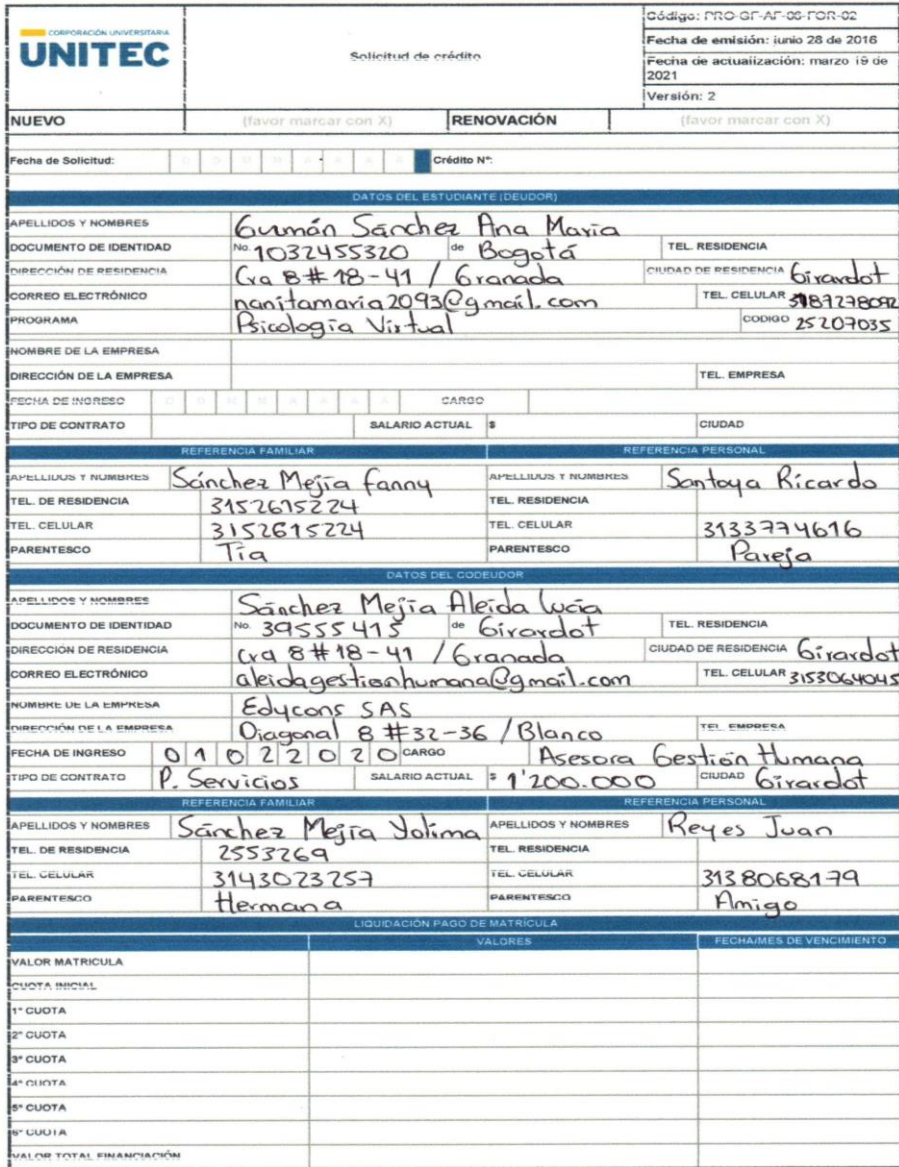 CORPORACIÓN UNIVERSITARIA
UNITEC
Solicitud de crédito
Código: PRO-GF-AF-06-FOR-02
Fecha de emisión: junio 28 de 2016
Fecha de actualización: marzo 19 de 2021
Versión: 2
NUEVO (favor marcar con X) RENOVACIÓN (favor marcar con X)
Fecha de Solicitud: D D M M A A A A Crédito N°:
DATOS DEL ESTUDIANTE (DEUDOR)
APELLIDOS Y NOMBRES Guzmán Sánchez Ana Maria
DOCUMENTO DE IDENTIDAD No. 1032455320 de Bogotá TEL. RESIDENCIA
DIRECCIÓN DE RESIDENCIA Cra 8 # 18-41 / Granada CIUDAD DE RESIDENCIA Girardot
CORREO ELECTRÓNICO nanitamaria2093@gmail.com TEL. CELULAR 3187278092
PROGRAMA Psicología Virtual CODIGO 25207035
NOMBRE DE LA EMPRESA
DIRECCIÓN DE LA EMPRESA TEL. EMPRESA
FECHA DE INGRESO D D M M A A A A CARGO
TIPO DE CONTRATO SALARIO ACTUAL $ CIUDAD
REFERENCIA FAMILIAR REFERENCIA PERSONAL
APELLIDOS Y NOMBRES Sánchez Mejía Fanny APELLIDOS Y NOMBRES Santoya Ricardo
TEL. DE RESIDENCIA 3152615224 TEL. RESIDENCIA
TEL. CELULAR 3152615224 TEL. CELULAR 3133774616
PARENTESCO Tía PARENTESCO Pareja
DATOS DEL CODEUDOR
APELLIDOS Y NOMBRES Sánchez Mejía Aleida Lucía
DOCUMENTO DE IDENTIDAD No. 39555415 de Girardot TEL. RESIDENCIA
DIRECCIÓN DE RESIDENCIA Cra 8 # 18-41 / Granada CIUDAD DE RESIDENCIA Girardot
CORREO ELECTRÓNICO aleidagestionhumana@gmail.com TEL. CELULAR 3153064045
NOMBRE DE LA EMPRESA Edycons SAS
DIRECCIÓN DE LA EMPRESA Diagonal 8 #32-36 / Blanco TEL. EMPRESA
FECHA DE INGRESO 0 1 0 2 2 0 2 0 CARGO Asesora Gestión Humana
TIPO DE CONTRATO P. Servicios SALARIO ACTUAL $ 1'200.000 CIUDAD Girardot
REFERENCIA FAMILIAR REFERENCIA PERSONAL
APELLIDOS Y NOMBRES Sánchez Mejía Yolima APELLIDOS Y NOMBRES Reyes Juan
TEL. DE RESIDENCIA 2553269 TEL. RESIDENCIA
TEL. CELULAR 3143023257 TEL. CELULAR 3138068179
PARENTESCO Hermana PARENTESCO Amigo
LIQUIDACIÓN PAGO DE MATRÍCULA
VALORES FECHA/MES DE VENCIMIENTO
VALOR MATRICULA
CUOTA INICIAL
1ª CUOTA
2ª CUOTA
3ª CUOTA
4ª CUOTA
5ª CUOTA
6ª CUOTA
VALOR TOTAL FINANCIACIÓN